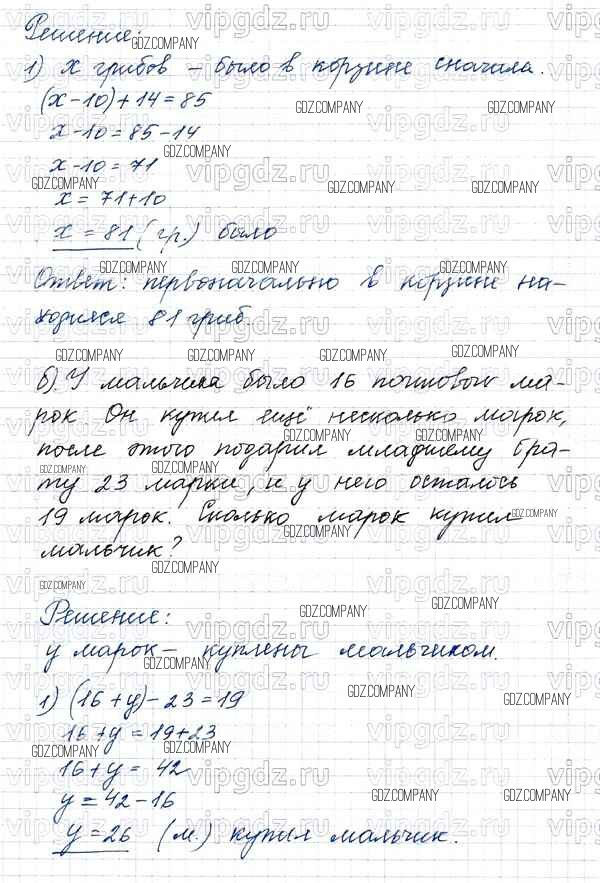 Решение:
1) х грибов – было в корзине сначала.
(х-10)+14=85
х-10=85-14
х-10=71
х=71+10
х=81 (гр.) было
Ответ: первоначально в корзине на-
ходился 81 гриб.
б) У мальчика было 16 почтовых ма-
рок. Он купил ещё несколько марок,
после этого подарил младшему бра-
ту 23 марки, и у него осталось
19 марок. Сколько марок купил
мальчик?
Решение:
у марок – куплены мальчиком.
1) (16+у)-23=19
16+у=19+23
16+у=42
у=42-16
у=26 (м.) купил мальчик.